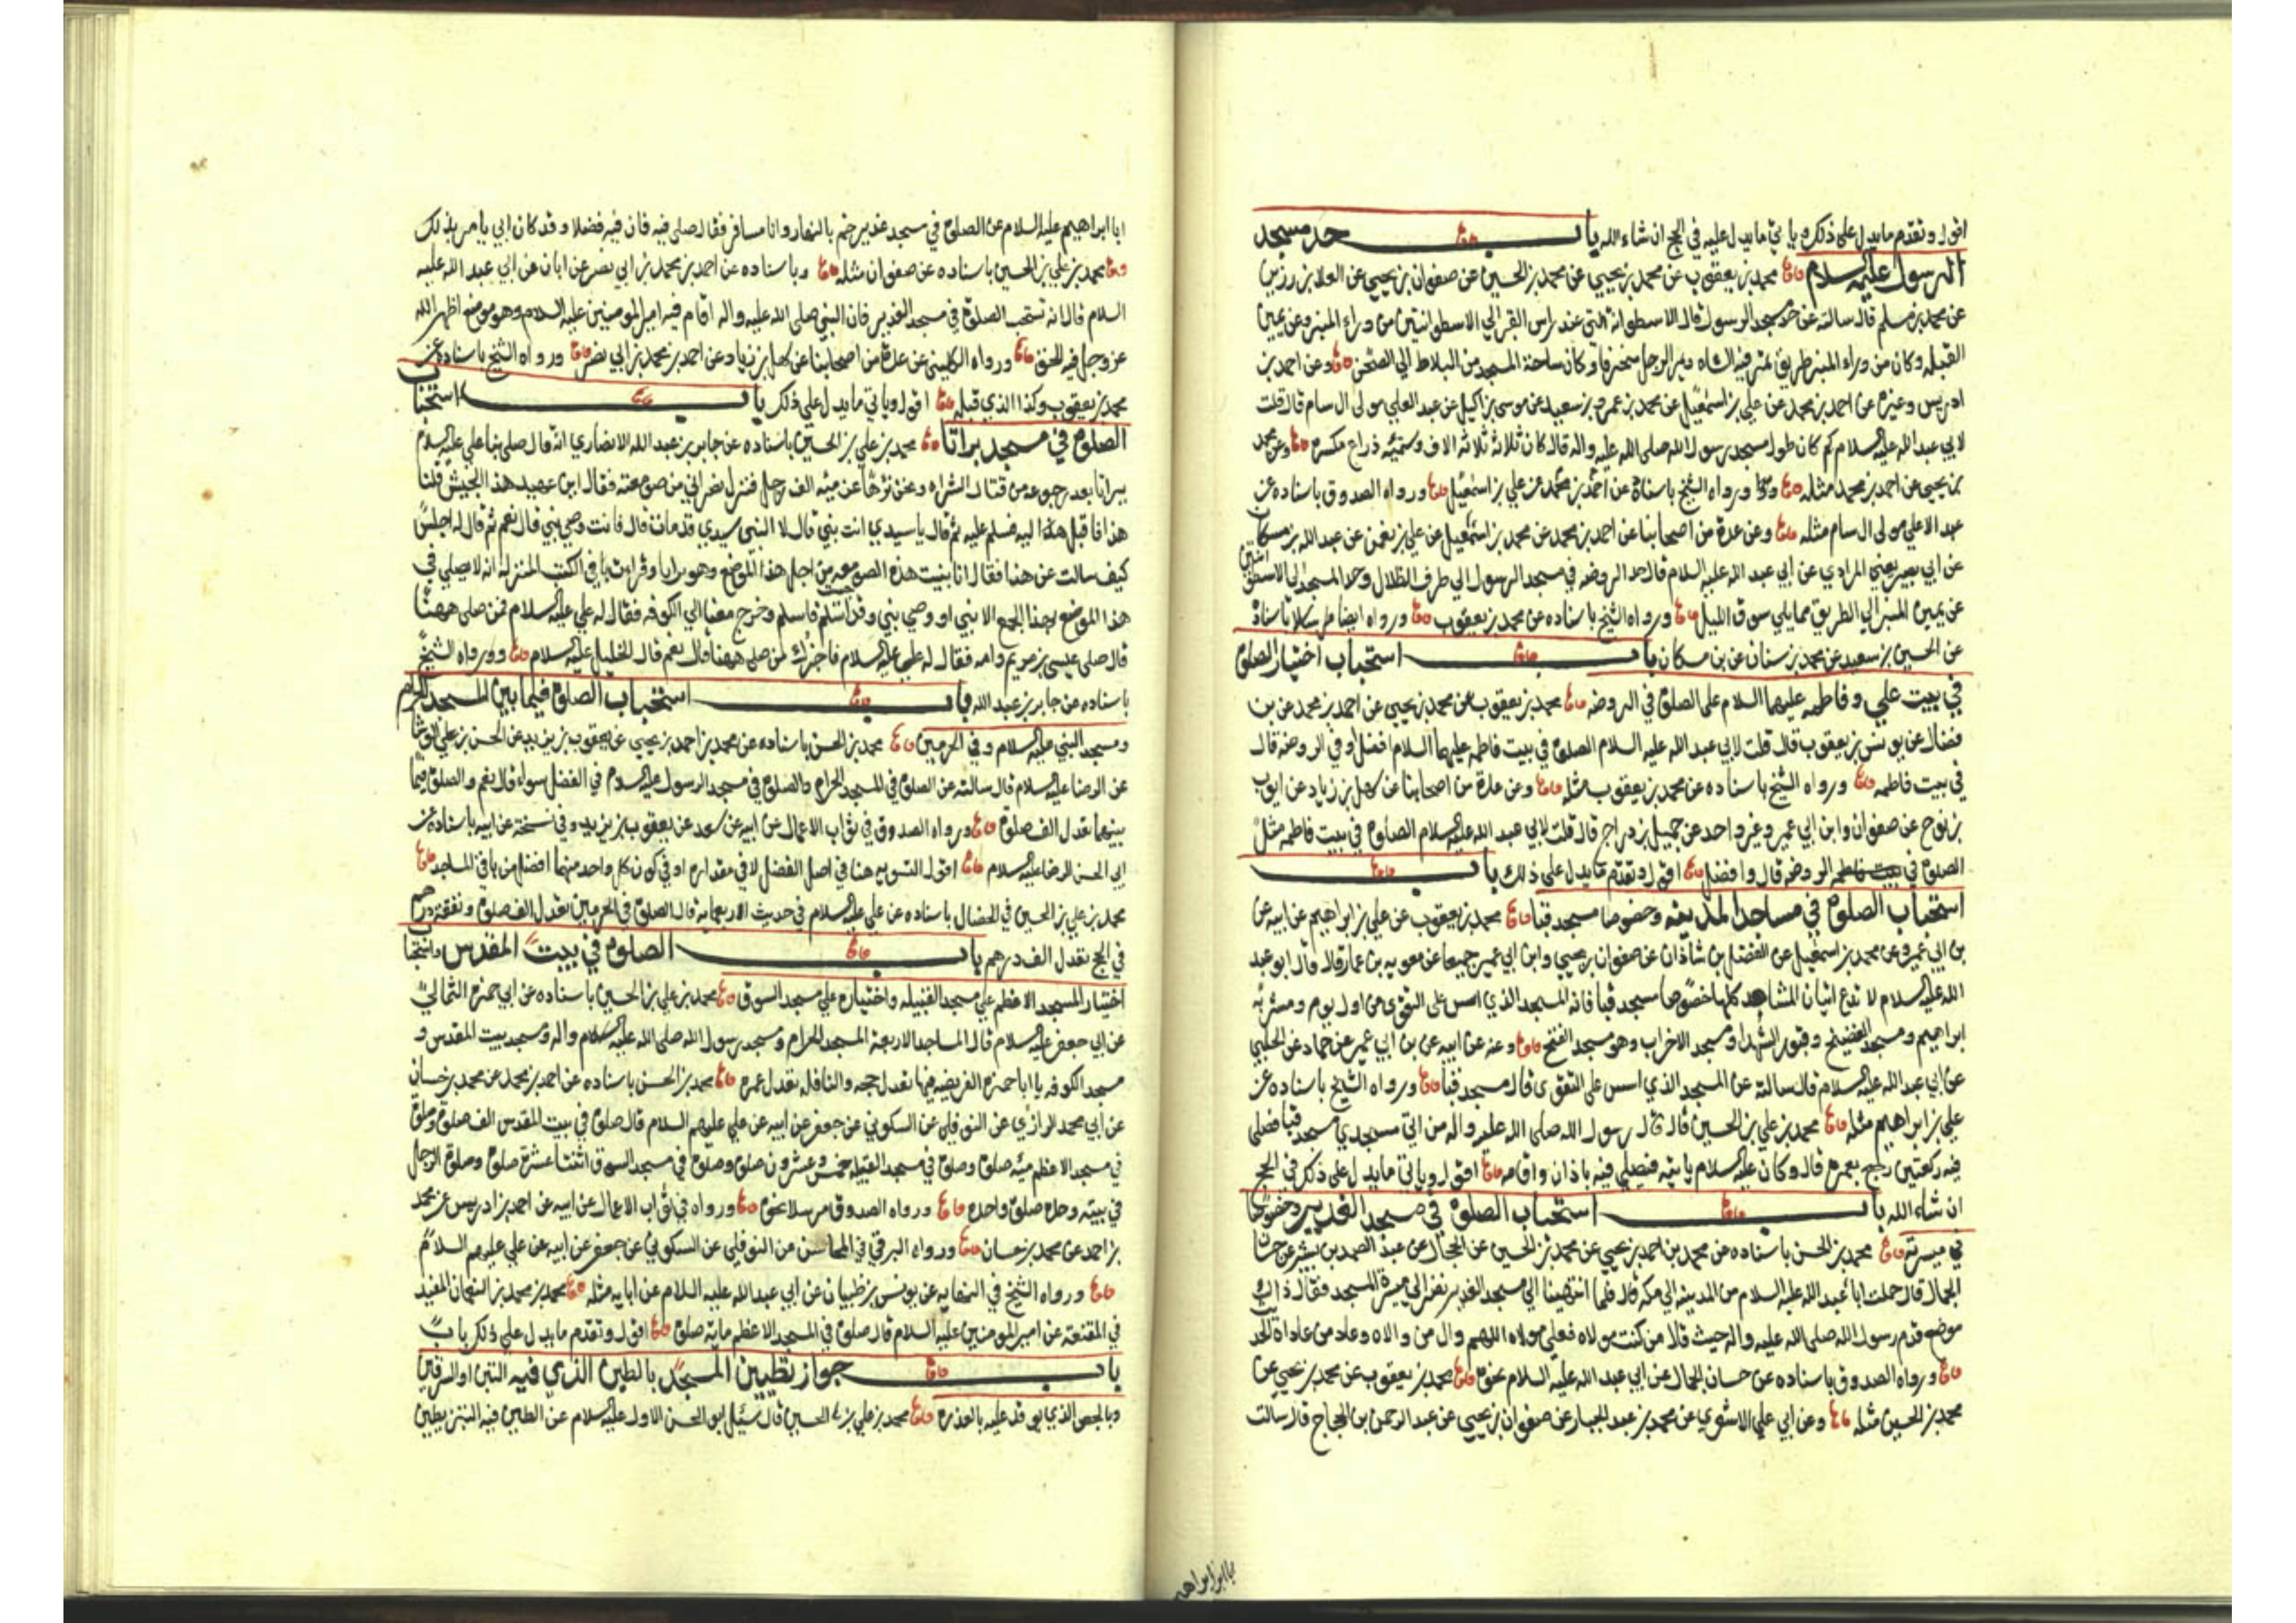 اقول وتقدم ما يدل على ذلك وياتي ما يدل عليه في الحج ان شاء الله باب حد مسجد
الرسول عليه السلام محمد بن يعقوب عن محمد بن يحيى عن محمد بن الحسين عن صفوان بن يحيى عن العلا بن رزين
عن محمد بن مسلم قال سالته عن حد مسجد الرسول قال الاسطوانة التي عند راس القبر الى الاسطوانتين من وراء المنبر وعن يمين
القبله وكان من وراء المنبر طريق تمر فيه الشاه ويمر الرجل منحرفا وكان ساحة المسجد من البلاط الى الصحن وعن احمد بن
ادريس وغيره عن احمد بن محمد عن علي بن اسمعيل عن محمد بن عمرو بن سعيد عن موسى بن اكيل عن عبد العلي مولى ال سام قال قلت
لابي عبد الله عليه السلام كم كان طول مسجد رسول الله صلى الله عليه واله قال كان ثلاثة ثلاثه الاف وستمئه ذراع مكسره وعن محمد
بن يحيى عن احمد بن محمد مثله ورواه الشيخ باسناده عن احمد بن محمد عن علي بن اسمعيل ورواه الصدوق باسناده عن
عبد الاعلى مولى ال سام مثله وعن عدة من اصحابنا عن احمد بن محمد عن محمد بن اسمعيل عن علي بن نعمن عن عبد الله بن مسكان
عن ابي بصير يعني المرادي عن ابي عبد الله عليه السلام قال حد الروضه في مسجد الرسول الى طرف الظلال وحد المسجد الى الاسطوانتين
عن يمين المنبر الى الطريق مما يلي سوق الليل ورواه الشيخ باسناده عن محمد بن يعقوب ورواه ايضا مرسلا باسناده
عن الحسين بن سعيد عن محمد بن سنان عن بن مسكان باب استحباب اختيار الصلوة
في بيت علي وفاطمه عليهما السلام على الصلوة في الروضه محمد بن يعقوب عن محمد بن يحيى عن احمد بن محمد عن بن
فضال عن يونس بن يعقوب قال قلت لابي عبد الله عليه السلام الصلوة في بيت فاطمه عليهما السلام افضل او في الروضة قال
في بيت فاطمه ورواه الشيخ باسناده عن محمد بن يعقوب مثله وعن عدة من اصحابنا عن سهل بن زياد عن ايوب
بن نوح عن صفوان وابن ابي عمير وغير واحد عن جميل بن دراج قال قلت لابي عبد الله عليه السلام الصلوة في بيت فاطمه مثل
الصلوة في الروضه قال وافضل اقول وتقدم ما يدل على ذلك باب
استحباب الصلوة في مساجد المدينه وخصوصا مسجد قبا محمد بن يعقوب عن علي بن ابراهيم عن ابيه عن
بن ابي عمير وعن محمد بن اسمعيل عن الفضل بن شاذان عن صفوان بن يحيى وابن ابي عمير جميعا عن معويه بن عمار قال قال ابو عبد
الله عليه السلام لا تدع اتيان المشاهد كلها خصوصا مسجد قبا فانه المسجد الذي اسس على التقوى من اول يوم ومشربة
ابراهيم ومسجد الفضيخ وقبور الشهدا ومسجد الاحزاب وهو مسجد الفتح وعنه عن ابيه عن بن ابي عمير عن حماد عن الحلبي
عن ابي عبد الله عليه السلام قال سالته عن المسجد الذي اسس على التقوى قال مسجد قبا ورواه الشيخ باسناده عن
علي بن ابراهيم مثله محمد بن علي بن الحسين قال قال رسول الله صلى الله عليه واله من اتى مسجدي مسجد قبا فصلى
فيه ركعتين رجع بعمره قال وكان عليه السلام ياتيه فيصلي فيه باذان واقامه اقول وياتي ما يدل على ذلك في الحج
ان شاء الله باب استحباب الصلوة في مسجد الغدير وخصوصا
في ميسرته محمد بن الحسن باسناده عن محمد بن احمد بن يحيى عن محمد بن الحسين عن الحجال عن عبد الصمد بن بشير عن حسان
الجمال قال حملت ابا عبد الله عليه السلام من المدينه الى مكه قال فلما انتهينا الى مسجد الغدير نظر الى ميسرة المسجد فقال ذاك
موضع قدم رسول الله صلى الله عليه واله حيث قال من كنت مولاه فعلي مولاه اللهم وال من والاه وعاد من عاداه الحديث
ورواه الصدوق باسناده عن حسان الجمال عن ابي عبد الله عليه السلام نحوه محمد بن يعقوب عن محمد بن يحيى عن
محمد بن الحسين مثله وعن ابي علي الاشعري عن محمد بن عبد الجبار عن صفوان بن يحيى عن عبد الرحمن بن الحجاج قال سالت
ابا ابراهيم
ابا ابراهيم عليه السلام عن الصلوة في مسجد غدير خم بالنهار وانا مسافر فقال صلي فيه فان فيه فضلا وقد كان ابي يامر بذلك
محمد بن علي بن الحسين باسناده عن صفوان مثله وباسناده عن احمد بن محمد بن ابي نصر عن ابان عن ابي عبد الله عليه
السلام قال انه تستحب الصلوة في مسجد الغدير فان النبي صلى الله عليه واله اقام فيه امير المومنين عليه السلام وهو موضع اظهر الله
عز وجل فيه الحق ورواه الكليني عن عدة من اصحابنا عن سهل بن زياد عن احمد بن محمد بن ابي نصر ورواه الشيخ باسناده عن
محمد بن يعقوب وكذا الذي قبله اقول وياتي ما يدل على ذلك باب استحباب
الصلوة في مسجد براثا محمد بن علي بن الحسين باسناده عن جابر بن عبد الله الانصاري انه قال صلى بنا علي عليه السلام
ببراثا بعد رجوعه من قتال الشراه ونحن زهاء عن مئه الف رجل فنزل نصراني من صومعته فقال اين عميد هذا الجيش قلنا
هذا فاقبل اليه فسلم عليه ثم قال يا سيدي انت نبي قال لا النبي سيدي قد مات قال فانت وصي نبي قال نعم ثم قال له اجلس
كيف سالت عن هذا فقال انا بنيت هذه الصومعه من اجل هذا الموضع وهو براثا وقرات في الكتب المنزله انه لا يصلي في
هذا الموضع بهذا الجمع الا نبي او وصي نبي وقد اسلم فاسلم وخرج معنا الى الكوفه فقال له علي عليه السلام فمن صلى ههنا
قال صلى عيسى بن مريم وامه فقال له علي عليه السلام فاخبرك من صلى ههنا قال نعم قال الخليل عليه السلام ورواه الشيخ
باسناده عن جابر بن عبد الله باب استحباب الصلوة فيما بين المسجد الحرام
ومسجد النبي عليه السلام وفي الحرمين محمد بن الحسن باسناده عن محمد بن احمد بن يحيى عن يعقوب بن يزيد عن الحسن بن علي الوشا
عن الرضا عليه السلام قال سالته عن الصلوة في المسجد الحرام والصلوة في مسجد الرسول عليه السلام في الفضل سواء قال نعم والصلوة فيما
بينهما تعدل الف صلوة ورواه الصدوق في ثواب الاعمال عن ابيه عن سعد عن يعقوب بن يزيد وفي نسخة عن ابيه باسناده عن
ابي الحسن الرضا عليه السلام اقول التسويه هنا في اصل الفضل لا في مقداره او في كون كل واحد منهما افضل من باقي المساجد
محمد بن علي بن الحسين في الخصال باسناده عن علي عليه السلام في حديث الاربعمايه قال الصلوة في الحرمين تعدل الف صلوة ونفقة درهم
في الحج تعدل الف درهم باب الصلوة في بيت المقدس واستحباب
اختيار المسجد الاعظم على مسجد القبيله واختياره على مسجد السوق محمد بن علي بن الحسين باسناده عن ابي حمزه الثمالي
عن ابي جعفر عليه السلام قال المساجد الاربعة المسجد الحرام ومسجد رسول الله صلى الله عليه واله ومسجد بيت المقدس و
مسجد الكوفه يا ابا حمزه الفريضه فيها تعدل حجه والنافله تعدل عمره محمد بن الحسن باسناده عن احمد بن محمد عن محمد بن حسان
عن ابي محمد الرازي عن النوفلي عن السكوني عن جعفر عن ابيه عن علي عليهم السلام قال صلوة في بيت المقدس الف صلوة وصلوة
في مسجد الاعظم مئه صلوة وصلوة في مسجد القبيله خمس وعشرون صلوة وصلوة في مسجد السوق اثنتا عشرة صلوة وصلوة الرجل
في بيته وحده صلوة واحده ورواه الصدوق مرسلا نحوه ورواه في ثواب الاعمال عن ابيه عن احمد بن ادريس عن محمد
بن احمد عن محمد بن حسان ورواه البرقي في المحاسن عن النوفلي عن السكوني عن جعفر عن ابيه عن علي عليهم السلام
ورواه الشيخ في النهايه عن يونس بن ظبيان عن ابي عبد الله عليه السلام عن ابايه مثله محمد بن محمد بن النعمان المفيد
في المقنعة عن امير المومنين عليه السلام قال صلوة في المسجد الاعظم مائة صلوة اقول وتقدم ما يدل على ذلك باب
باب جواز تطيين المسجد بالطين الذي فيه التبن او السرقين
وبالجص الذي يوقد عليه بالعذره محمد بن علي بن الحسين قال سئل ابو الحسن الاول عليه السلام عن الطين فيه التبن يطين